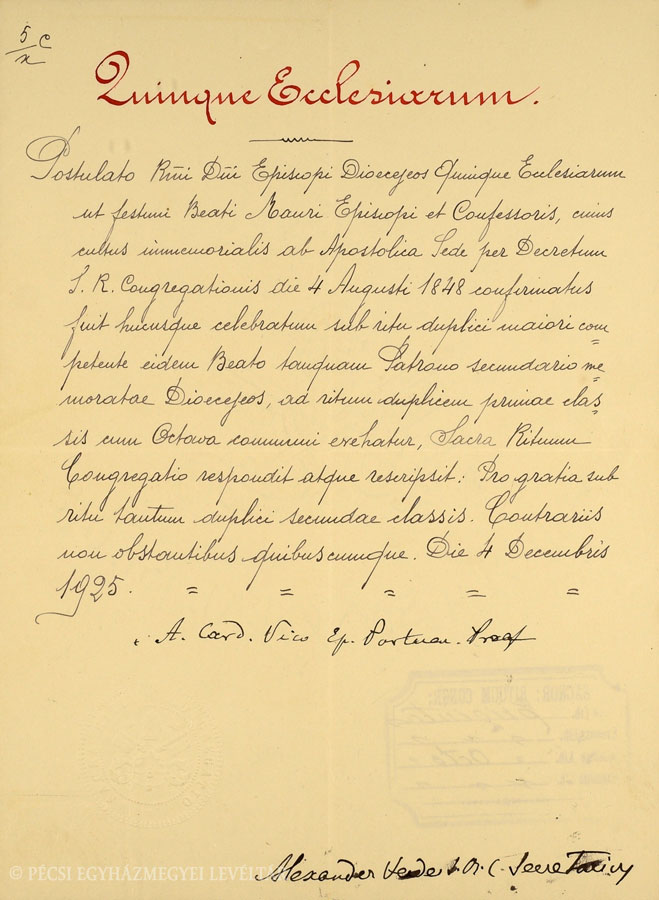 5 c
x
Quinque Ecclesiarum.
Postulato Rmi Dni Episcopi Dioeceseos Quinque Ecclesiarum
ut festum Beati Mauri Episcopi et Confessoris, cuius
cultus immemorialis ab Apostolica Sede per Decretum
S. R. Congregationis die 4 Augusti 1848 confirmatus
fuit hucusque celebratum sub ritu duplici maiori com=
petente eidem Beato tanquam Patrono secundario me=
moratae Dioeceseos, ad ritum duplicem primae clas=
sis cum Octava communi evehatur, Sacra Rituum
Congregatio respondit atque rescripsit: Pro gratia sub
ritu tantum duplici secundae classis. Contrariis
non obstantibus quibuscumque. Die 4 Decembris
1925. = = = = =
A. Card. Vico Ep. Portuen. Praef
SACROR: RITUUM CONGR:
© PÉCSI EGYHÁZMEGYEI LEVÉLT
Alexander Verde S. R. C. Secretarius